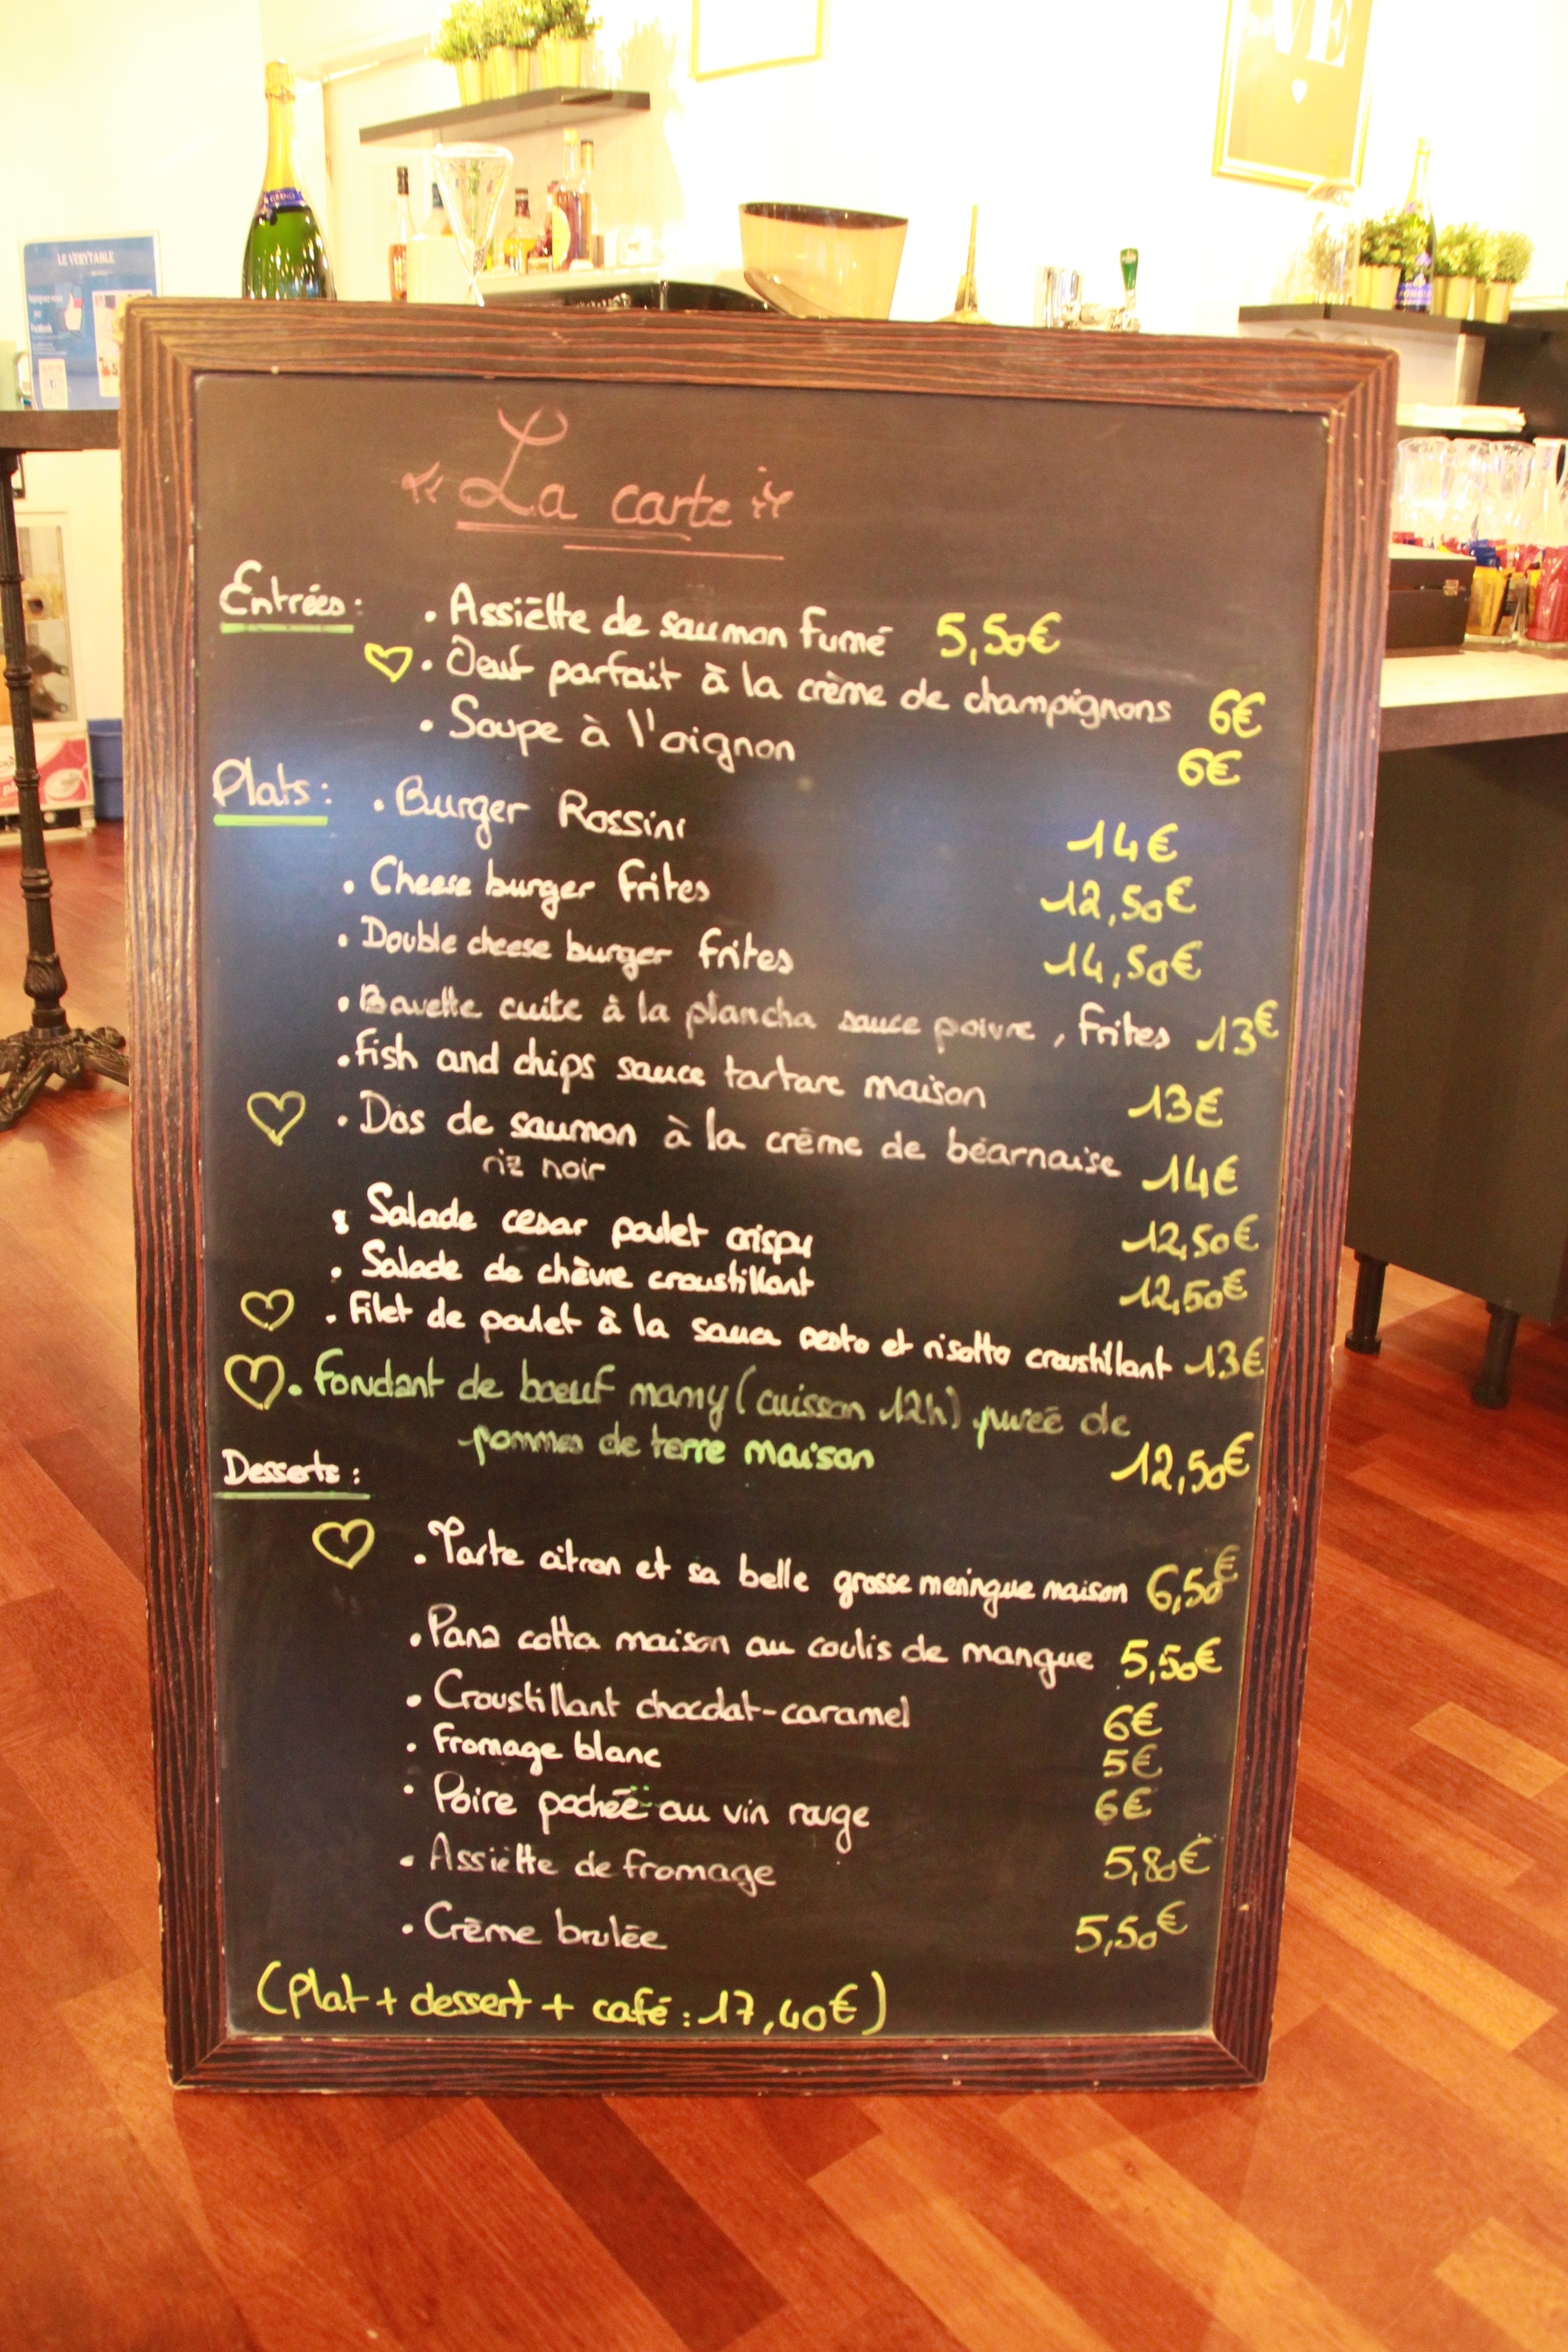 LE VERYTABLE
VE
La carte
Entrées :
. Assiëtte de saumon fumé 5,50€
. Oeuf parfait à la crème de champignons 6€
. Soupe à l'oignon 6€
Plats :
. Burger Rossini 14€
. Cheese burger frites 12,50€
. Double cheese burger frites 14,50€
. Bavette cuite à la plancha sauce poivre, frites 13€
. Fish and chips sauce tartare maison 13€
. Dos de saumon à la crème de béarnaise 14€
riz noir
. Salade cesar poulet crispy 12,50€
. Salade de chèvre croustillant 12,50€
. Filet de poulet à la sauce pesto et risotto croustillant 13€
. Fondant de boeuf mamy (cuisson 12h) purée de
pommes de terre maison 12,50€
Desserts :
. Tarte citron et sa belle grosse meringue maison 6,50€
. Pana cotta maison au coulis de mangue 5,50€
. Croustillant chocolat-caramel 6€
. Fromage blanc 5€
. Poire pochée au vin rouge 6€
. Assiëtte de fromage 5,80€
. Crème brulée 5,50€
(Plat + dessert + café : 17,40€)